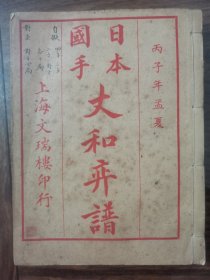 丙子年孟夏
日本
國手
丈和弈譜
上海文瑞樓印行